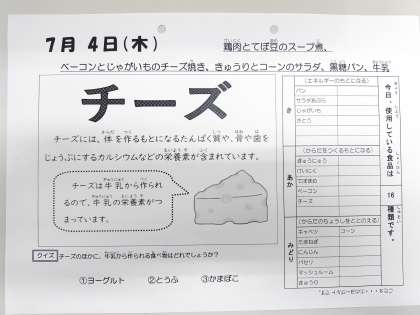 7月 4日(木)
鶏肉とてぼ豆のスープ煮、
ベーコンとじゃがいものチーズ焼き、きゅうりとコーンのサラダ、黒糖パン、牛乳
チーズ
チーズには、体を作るもとになるたんぱく質や、骨や歯を
じょうぶにするカルシウムなどの栄養素が含まれています。
チーズは牛乳から作られ
るので、牛乳の栄養素がつ
まっています。
クイズ チーズのほかに、牛乳から作られる食べ物はどれでしょうか?
①ヨーグルト ②とうふ ③かまぼこ
今日、使用している食品は 16 種類です。
き
(エネルギーのもとになる)
パン
サラダあぶら
じゃがいも
さとう
あか
(からだをつくるもとになる)
ぎゅうにゅう
けいにく
てぼまめ
ベーコン
チーズ
みどり
(からだのちょうしをととのえる)
キャベツ コーン
たまねぎ
にんじん
パセリ
マッシュルーム
きゅうり